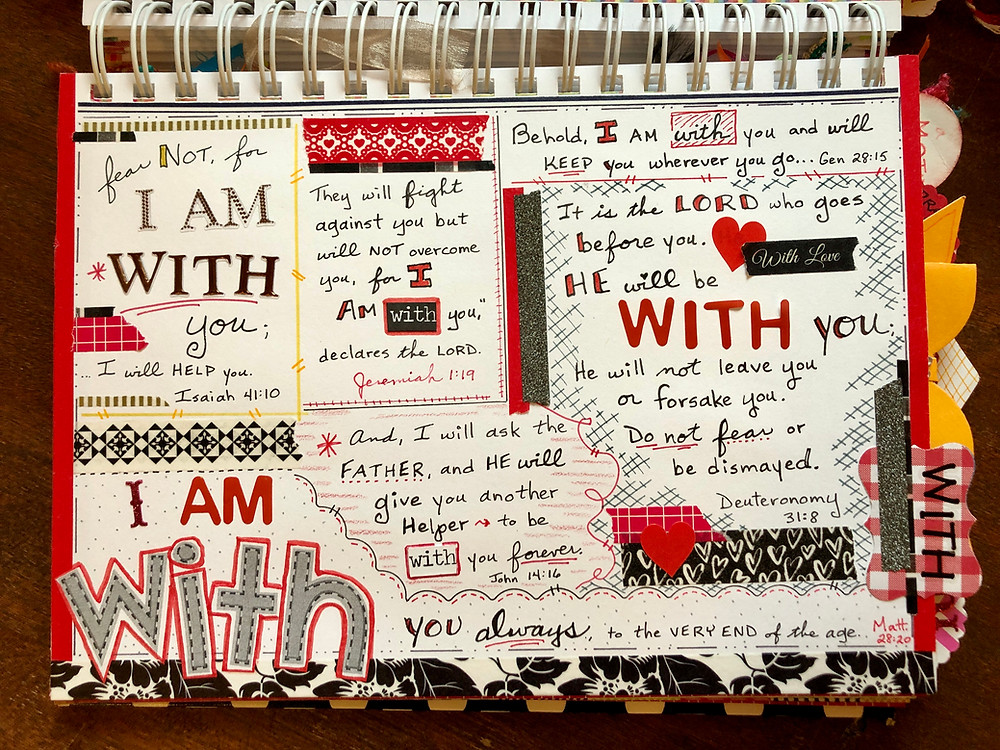 fear NOT, for
I AM
* WITH
you;
... I will HELP you.
Isaiah 41:10
They will fight
against you but
will NOT overcome
you, for I
AM with you,"
declares the LORD.
Jeremiah 1:19
Behold, I AM with you and will
KEEP you wherever you go... Gen 28:15
It is the LORD who goes
before you.
With Love
HE will be
WITH you;
He will not leave you
or forsake you.
Do not fear or
be dismayed.
Deuteronomy
31:8
* And, I will ask the
FATHER, and HE will
give you another
Helper → to be
with you forever.
John 14:16
I AM
with
YOU always, to the VERY END of the age...
Matt
28:20
WITH